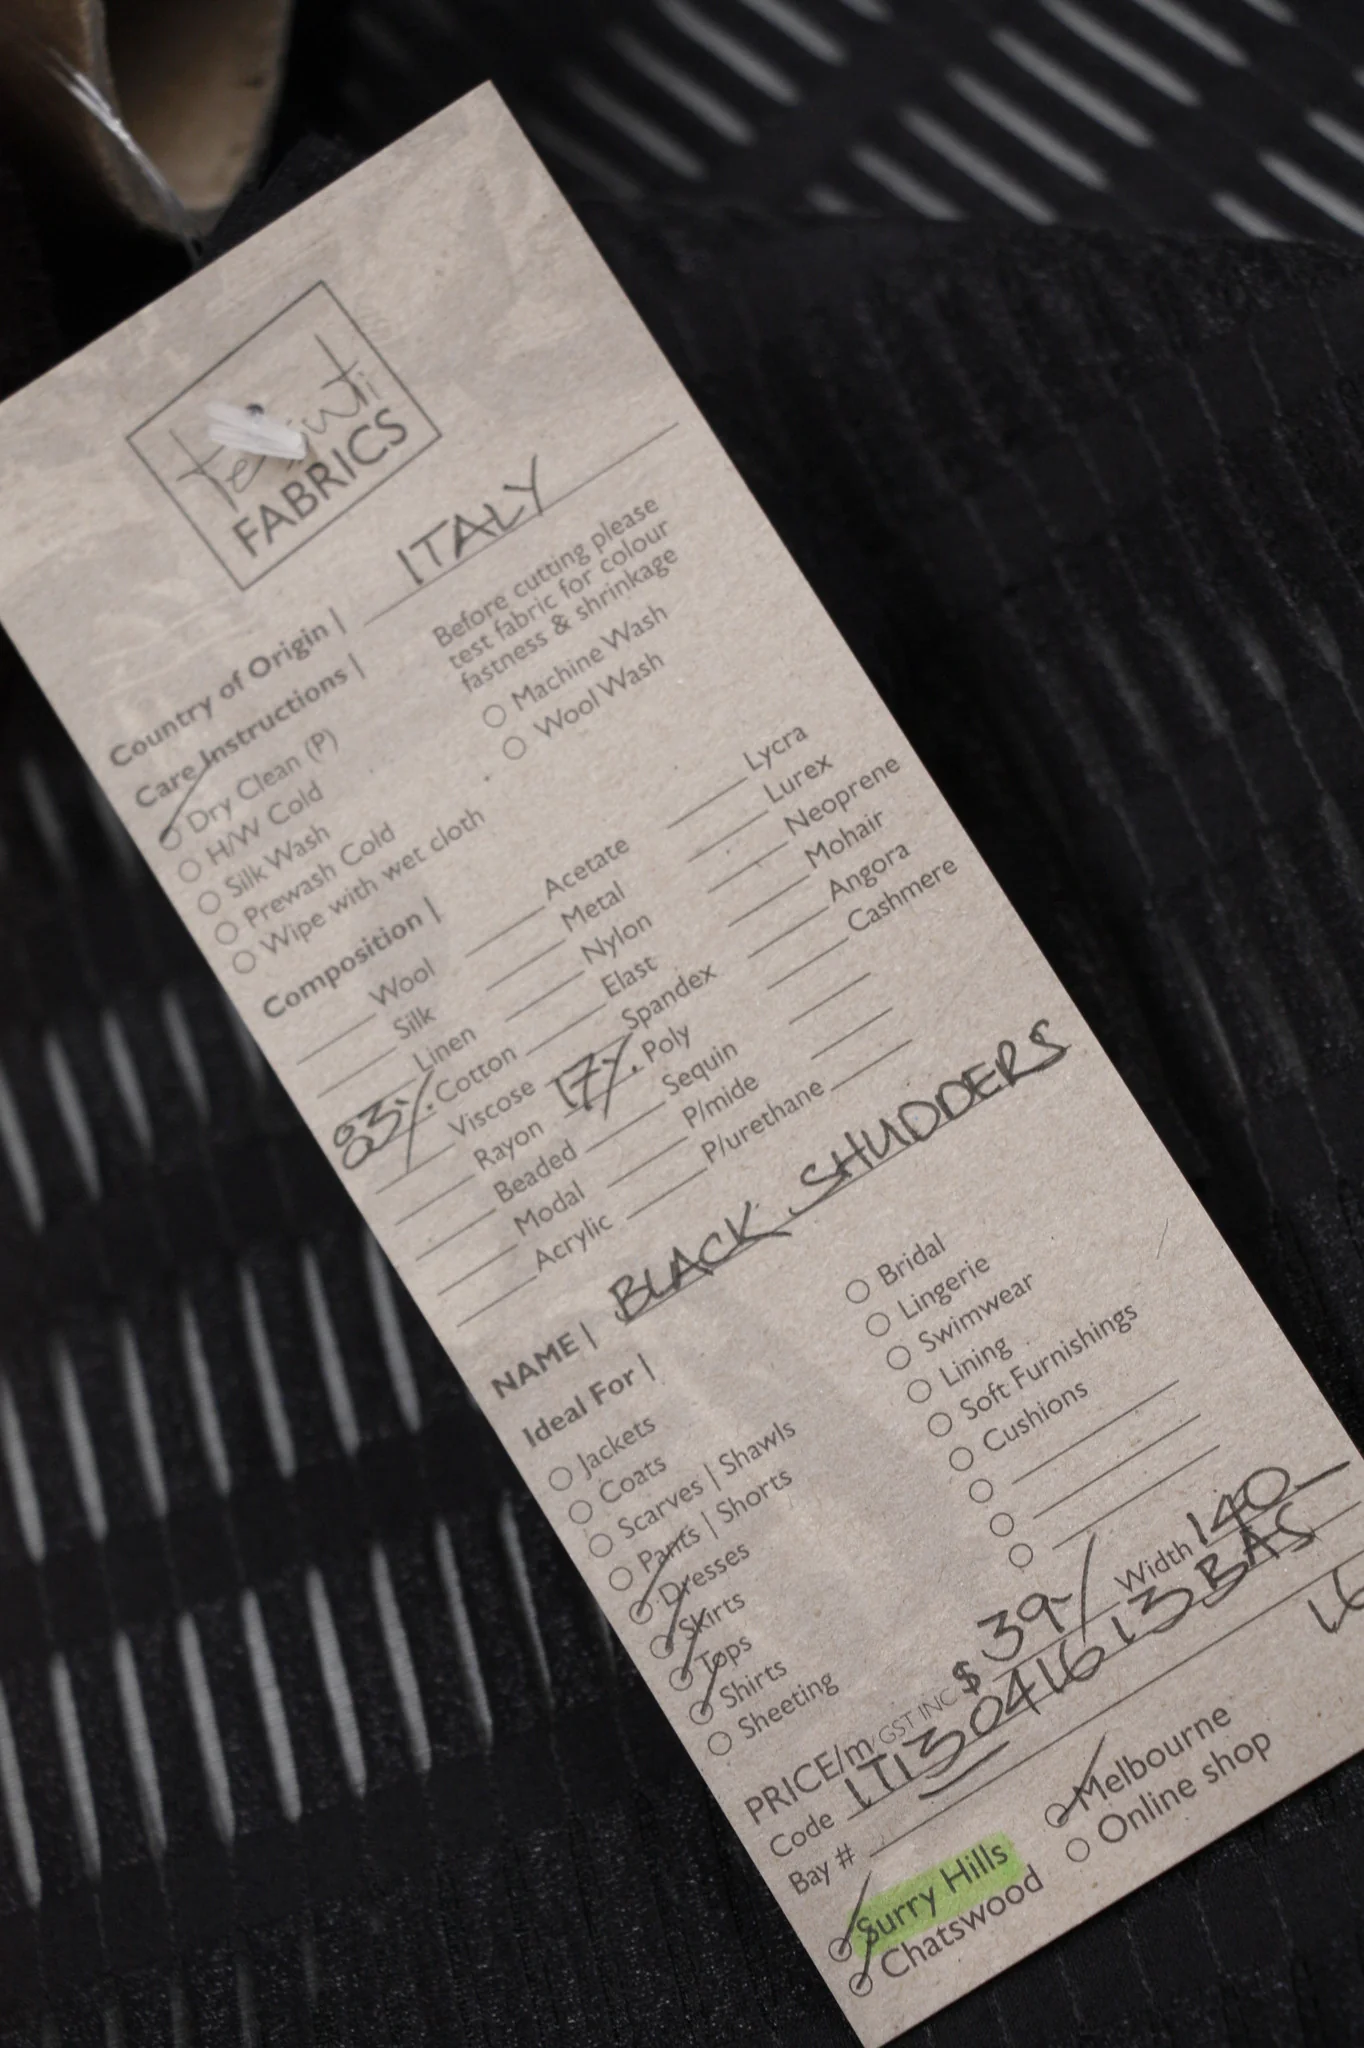 FABRICS
Country of Origin | ITALY
Care Instructions |
Before cutting please
test fabric for colour
fastness & shrinkage
Dry Clean (P)
H/W Cold
Silk Wash
Prewash Cold
Wipe with wet cloth
Machine Wash
Wool Wash
Composition |
Wool
Silk
Linen
83% Cotton
Viscose
Rayon
Beaded
Modal
Acrylic
Acetate
Metal
Nylon
Elast
Spandex
17% Poly
Sequin
P/mide
P/urethane
Lycra
Lurex
Neoprene
Mohair
Angora
Cashmere
NAME | BLACK SHUDDERS
Ideal For |
Jackets
Coats
Scarves | Shawls
Pants | Shorts
Dresses
Skirts
Tops
Shirts
Sheeting
Bridal
Lingerie
Swimwear
Lining
Soft Furnishings
Cushions
PRICE/m GST INC $39-/ Width 140
Code 1T13041613BAS
Bay # 16
Surry Hills
Chatswood
Melbourne
Online shop